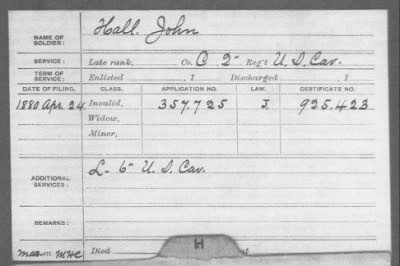 NAME OF SOLDIER: Hall, John
SERVICE: Late rank, Co. C 2" Reg't U. S. Cav.
TERM OF SERVICE: Enlisted , 1 Discharged , 1
DATE OF FILING. CLASS. APPLICATION NO. LAW. CERTIFICATE NO.
1880 Apr. 24 Invalid, 357.725 J 925.423
Widow,
Minor,
ADDITIONAL SERVICES: L- 6" U. S. Cav.
REMARKS:
Died
H